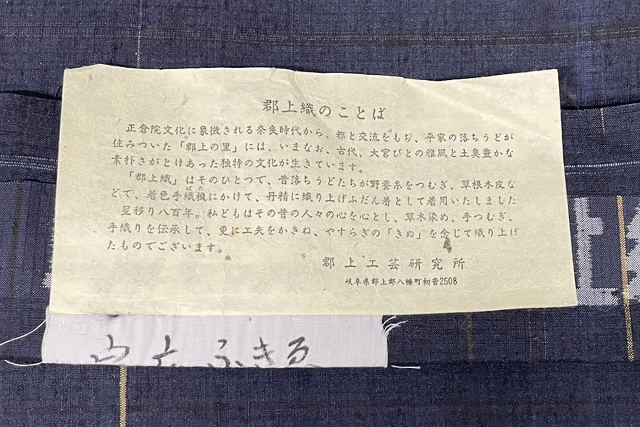 郡上織のことば
正倉院文化に象徴される奈良時代から、都と交流をもち、平家の落ちうどが
住みついた「郡上の里」には、いまなお、古代、大宮びとの雅風と土臭豊かな
素朴さがとけあった独特の文化が生きています。
「郡上織」はそのひとつで、昔落ちうどたちが野蚕糸をつむぎ、草根木皮な
どで、着色手織機にかけて、丹精に織り上げふだん着として着用いたしました
星移り八百年。私どもはその昔の人々の心を心とし、草木染め、手つむぎ、
手織りを伝承して、更に工夫をかさね、やすらぎの「きぬ」を念じて織り上げ
たものでございます。
郡上工芸研究所
岐阜県郡上郡八幡町初音2508